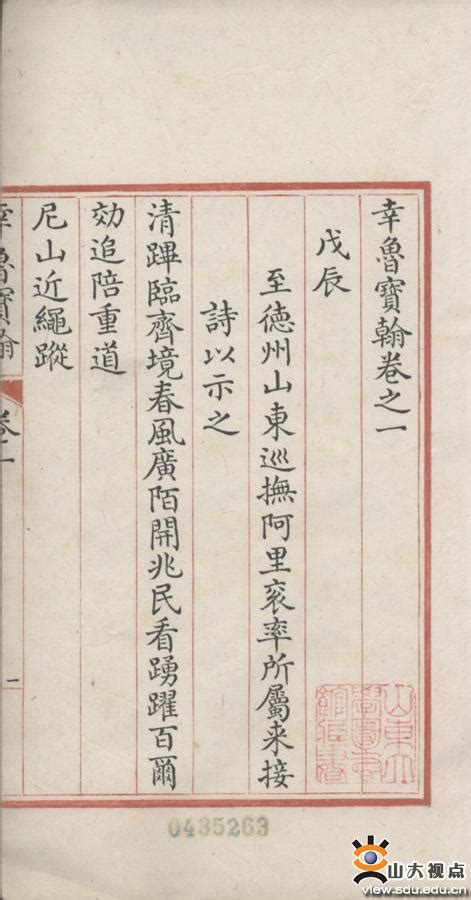 幸魯寶翰卷之一
戊辰
至德州山東巡撫阿里衮率所屬来接
詩以示之
清蹕臨齊境春風廣陌開兆民看踴躍百爾
効追陪重道
尼山近繩蹤
幸魯寶翰
卷一
一
山東大學圖書館館藏書
0435263
山大视点
view.sdu.edu.cn